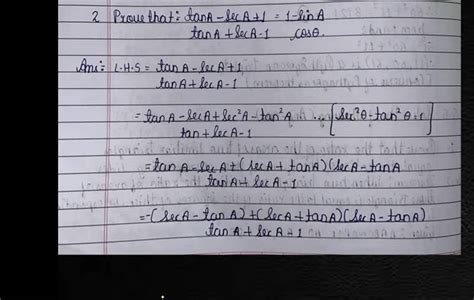 2 Prove that: tanA - secA + 1 = 1 - sinA
tanA + secA - 1 cosθ.
Ans:- L.H.S = tanA - secA + 1
tanA + secA - 1
= tanA - secA + sec²A - tan²A ... [sec²θ - tan²θ = 1]
tan + secA - 1
= tanA - secA + (secA + tanA)(secA - tanA
tanA + secA - 1
= -(secA - tanA) + (secA + tanA)(secA - tanA)
tanA + secA + 1